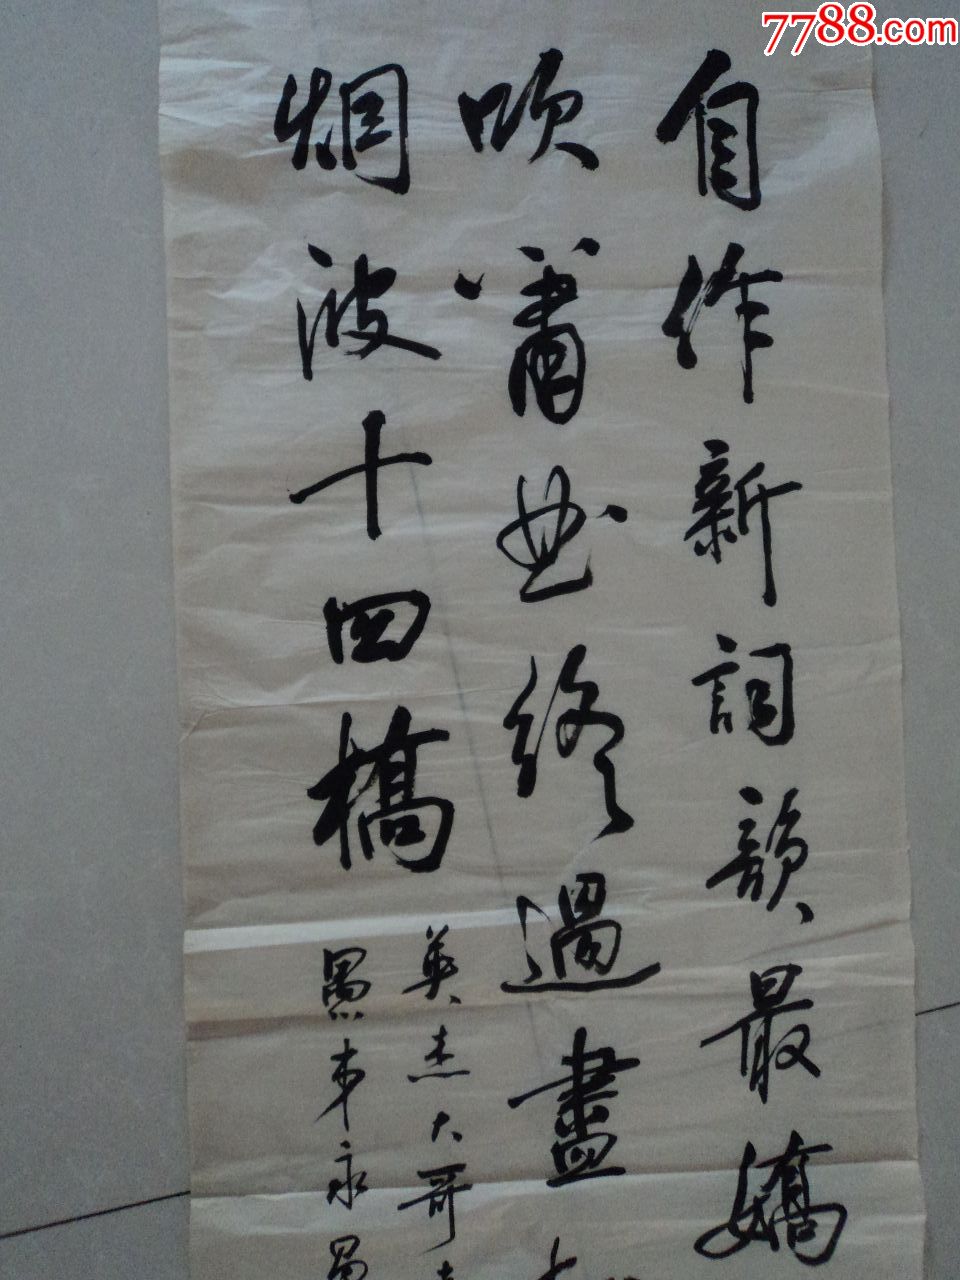 7788.com
自作新詞韻最嬌
吹簫曲終過盡
烟波十四橋
英杰大哥
愚弟永昌